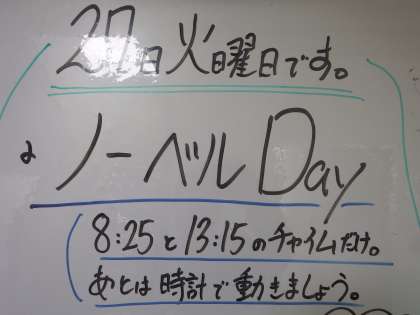 27日火曜日です。
ノーベルDay
8:25と13:15のチャイムだけ。
あとは時計で動きましょう。